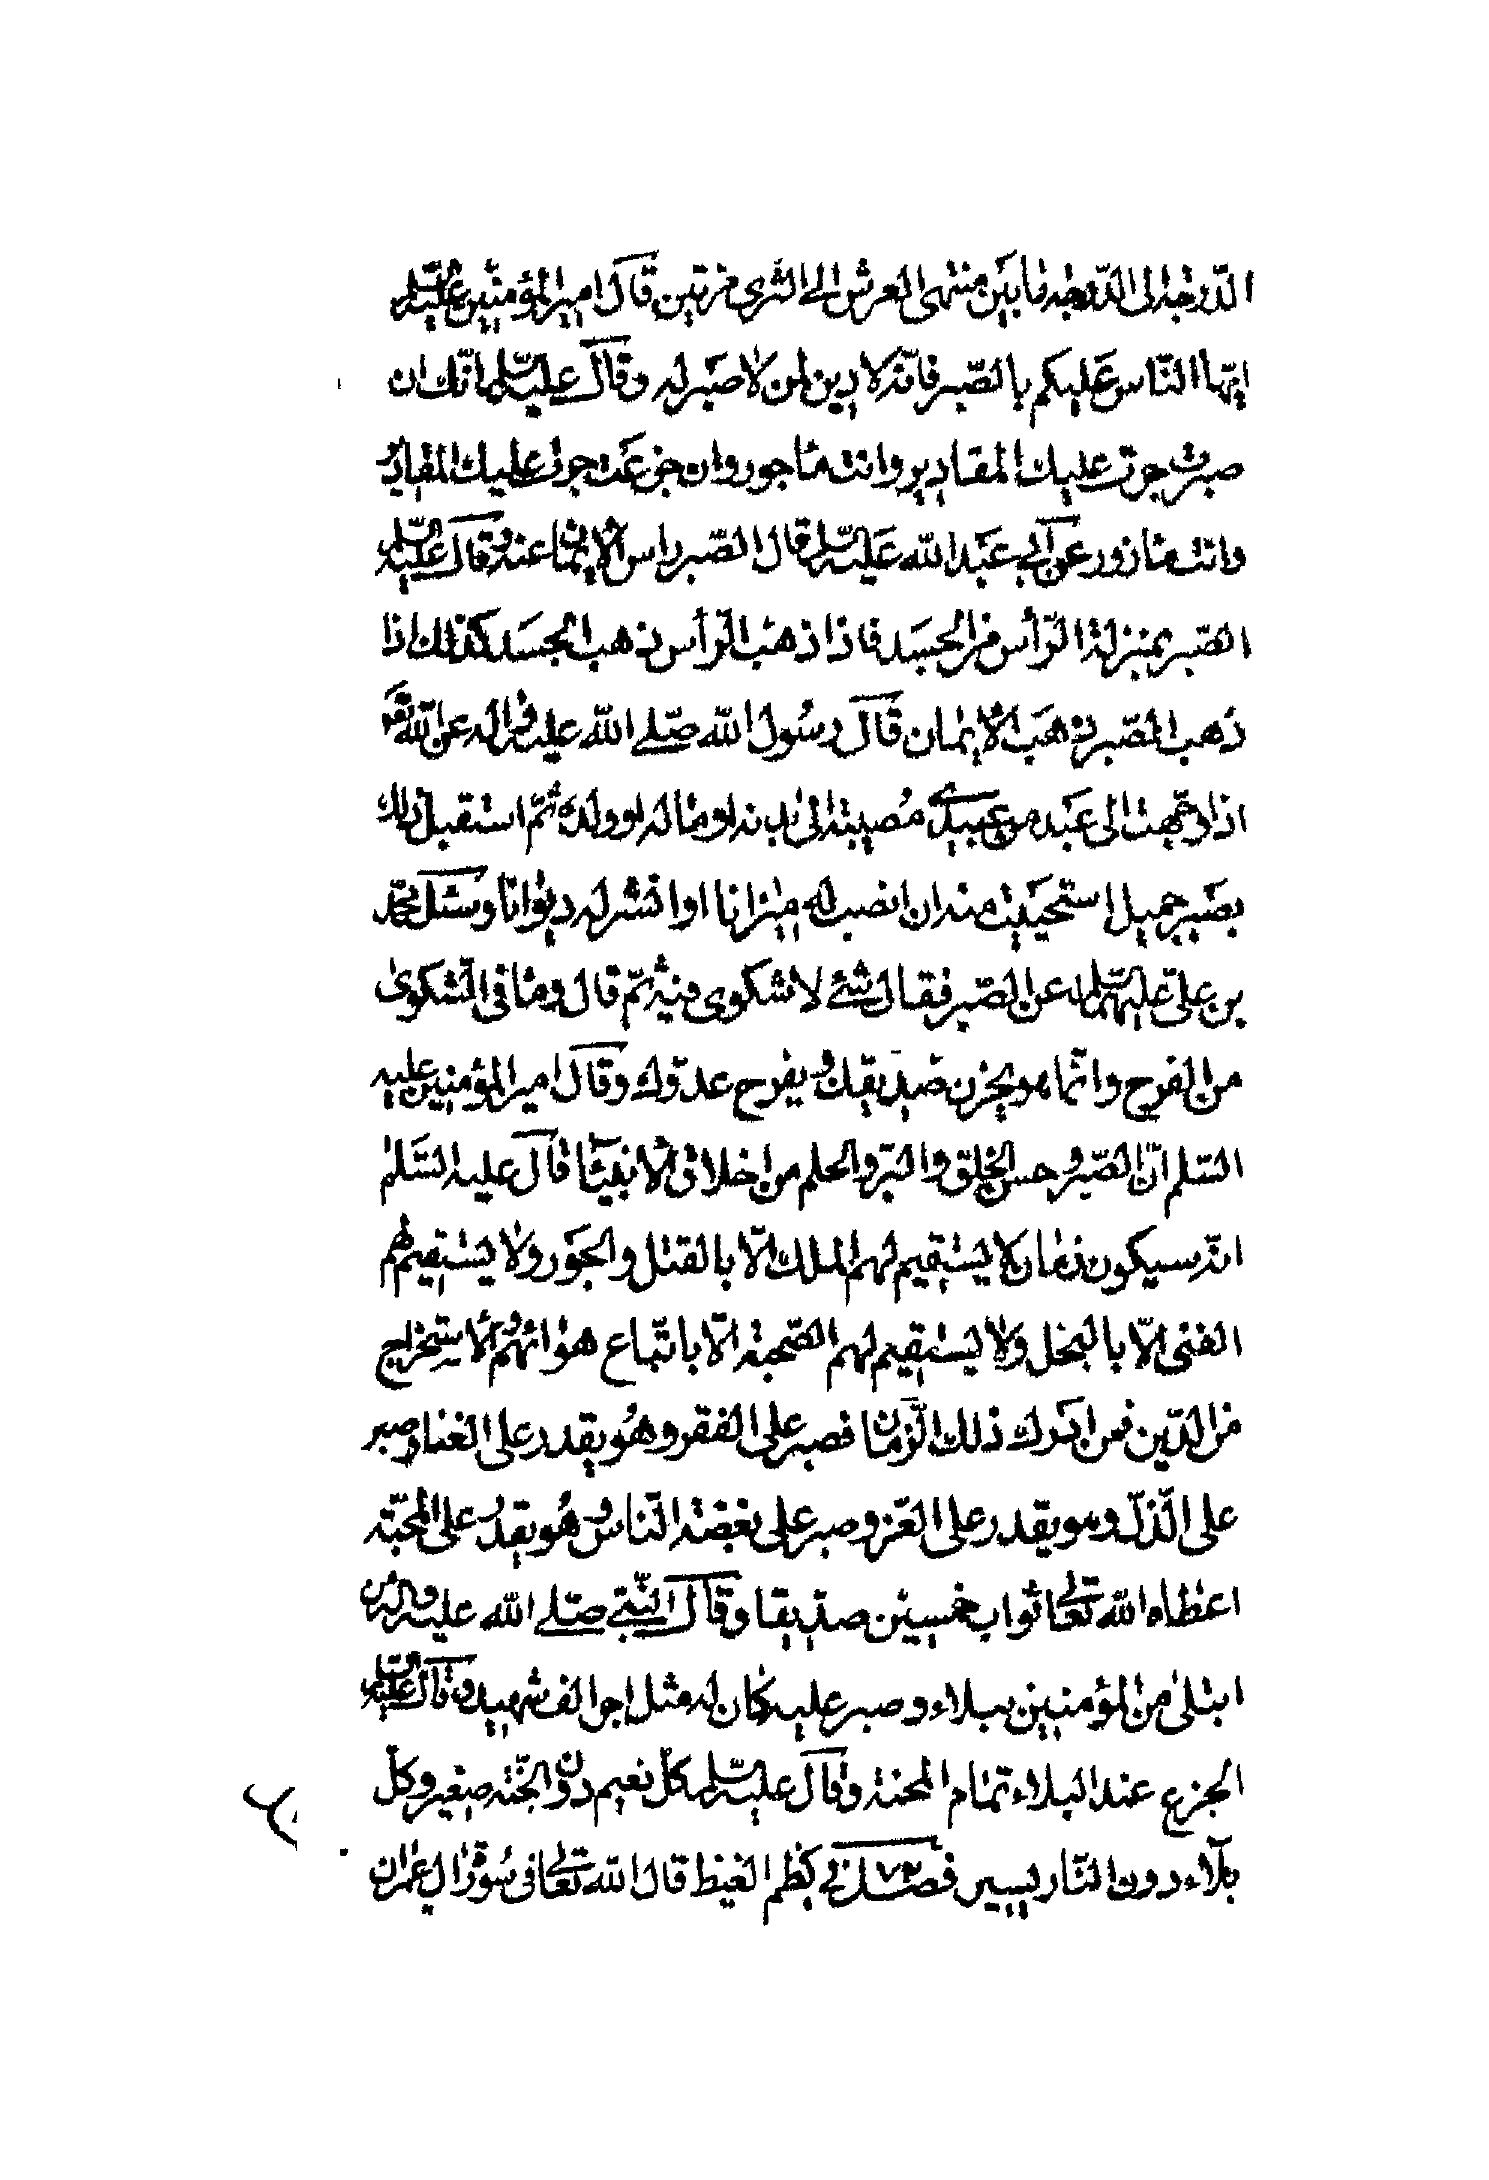 الدرجة الى الدرجة ما بين منتهى العرش الى الثرى مرتين قال امير المؤمنين عليه السلم
ايها الناس عليكم بالصبر فانه لا دين لمن لا صبر له وقال عليه السلم انك ان
صبرت جرت عليك المقادير وانت ماجور وان جزعت جرت عليك المقادير
وانت مأزور عن ابي عبد الله عليه السلم قال الصبر راس الايمان عنه وقال عليه السلم
الصبر بمنزلة الرأس من الجسد فاذا ذهب الرأس ذهب الجسد كذلك اذا
ذهب الصبر ذهب الايمان قال رسول الله صلى الله عليه واله عن الله تعالى
اذا وجهت الى عبد من عبيدى مصيبة فى بدنه او ماله او ولده ثم استقبل ذلك
بصبر جميل استحييت منه ان انصب له ميزانا او انشر له ديوانا وسئل محمد
بن على عليهما السلم عن الصبر فقال شئ لا شكوى فيه ثم قال وما فى الشكوى
من الفرح وانما هو يحزن صديقك ويفرح عدوك وقال امير المؤمنين عليه
السلم ان الصبر وحسن الخلق والبر والحلم من اخلاق الانبيا قال عليه السلم
انه سيكون زمان لا يستقيم لهم الملك الا بالقتل والجور ولا يستقيم لهم
الغنى الا بالبخل ولا يستقيم لهم الصحبة الا باتباع هوائهم والاستخراج
من الدين فمن ادرك ذلك الزمان فصبر على الفقر وهو يقدر على الغنا وصبر
على الذل وهو يقدر على العز وصبر على بغضة الناس وهو يقدر على المحبة
اعطاه الله تعالى ثواب خمسين صديقا وقال النبى صلى الله عليه واله من
ابتلى من المؤمنين ببلاء وصبر عليه كان له مثل اجر الف شهيد وقال عليه السلم
الجزع عند البلاء تمام المحنة وقال عليه السلم كل نعيم دون الجنة صغير وكل
بلاء دون النار يسير فصل ٧٢ في كظم الغيظ قال الله تعالى فى سورة ال عمران